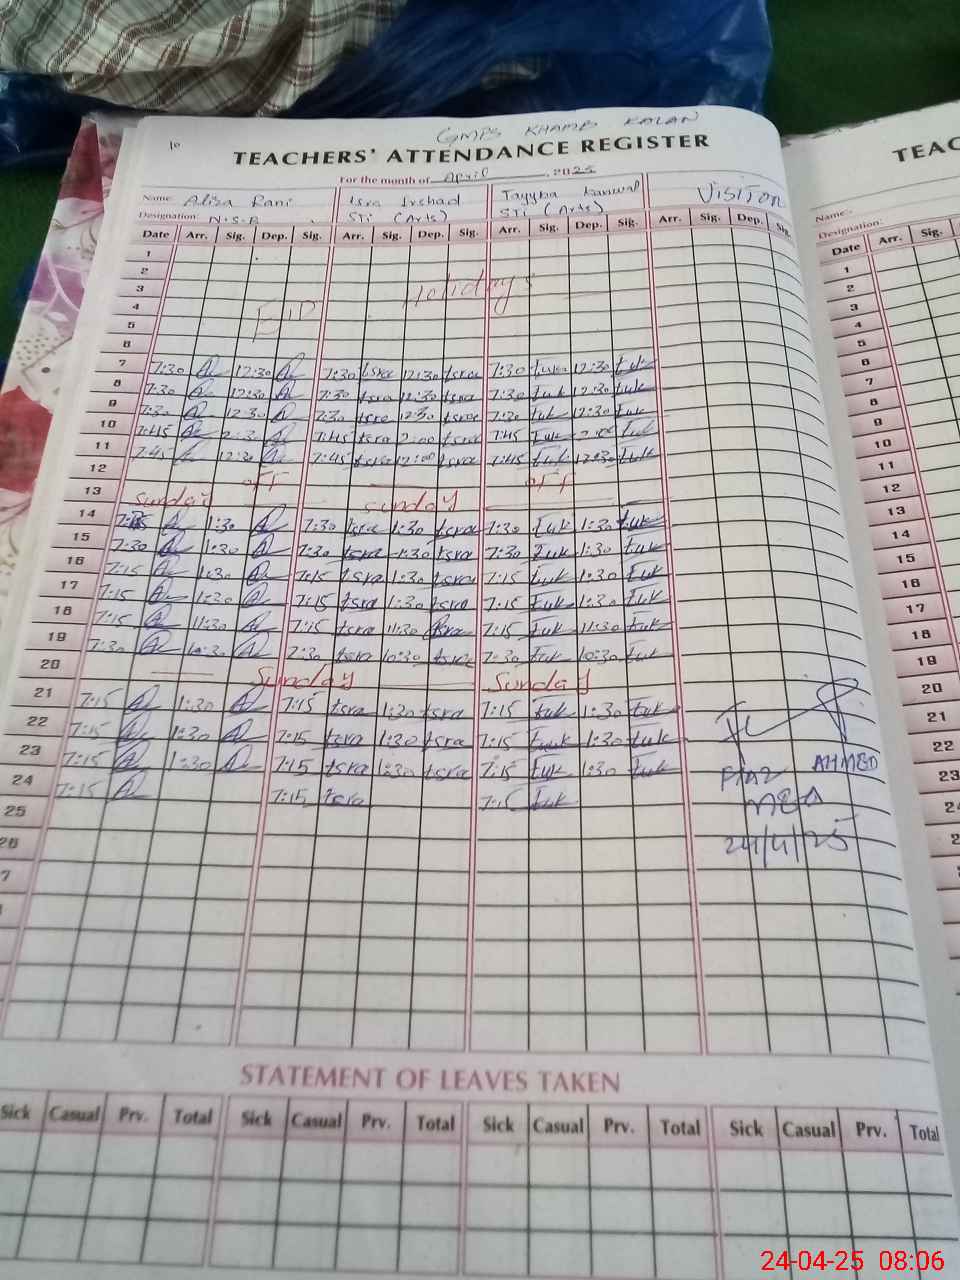 GMPS KHAMB KALAN
10
TEACHERS' ATTENDANCE REGISTER
For the month of April, 2025
Name: Alisa Rani Isra Irshad Tayyba Kanwal VISITOR
Designation: N.S.B STi (Arts) STi (Arts)
Date Arr. Sig. Dep. Sig. Arr. Sig. Dep. Sig. Arr. Sig. Dep. Sig. Arr. Sig. Dep. Sig.
1
2
3 Holidays
4
5 EID
6
7 7:30 12:30 7:30 isra 12:30 isra 7:30 tuk 12:30 tuk
8 7:30 12:30 7:30 isra 12:30 isra 7:30 tuk 12:30 tuk
9 7:30 12:30 7:30 isra 12:30 isra 7:30 tuk 12:30 tuk
10 7:45 7:45 isra 2:00 isra 7:45 tuk tuk
11 7:45 12:30 7:45 isra 12:00 isra 7:45 tuk 12:30 tuk
12 off off
13 Sunday Sunday
14 1:30 7:30 isra 1:30 isra 7:30 tuk 1:30 tuk
15 7:30 1:30 7:30 isra 1:30 isra 7:30 tuk 1:30 tuk
16 7:15 1:30 7:15 isra 1:30 isra 7:15 tuk 1:30 tuk
17 7:15 1:30 7:15 isra 1:30 isra 7:15 tuk 1:30 tuk
18 7:15 11:30 7:15 isra 11:30 isra 7:15 tuk 11:30 tuk
19 7:30 10:30 7:30 isra 10:30 isra 7:30 tuk 10:30 tuk
20 Sunday Sunday
21 7:15 1:30 7:15 isra 1:30 isra 7:15 tuk 1:30 tuk
22 7:15 1:30 7:15 isra 1:30 isra 7:15 tuk 1:30 tuk
23 7:15 1:30 7:15 isra 1:30 isra 7:15 tuk 1:30 tuk
24 7:15 7:15 isra 7:15 tuk
AHMED
25
24/4/25
26
7
STATEMENT OF LEAVES TAKEN
Sick Casual Prv. Total Sick Casual Prv. Total Sick Casual Prv. Total Sick Casual Prv. Total
TEAC
Name:
Designation:
Date Arr. Sig.
1
2
3
4
5
6
7
8
9
10
11
12
13
14
15
16
17
18
19
20
21
22
23
24-04-25 08:06